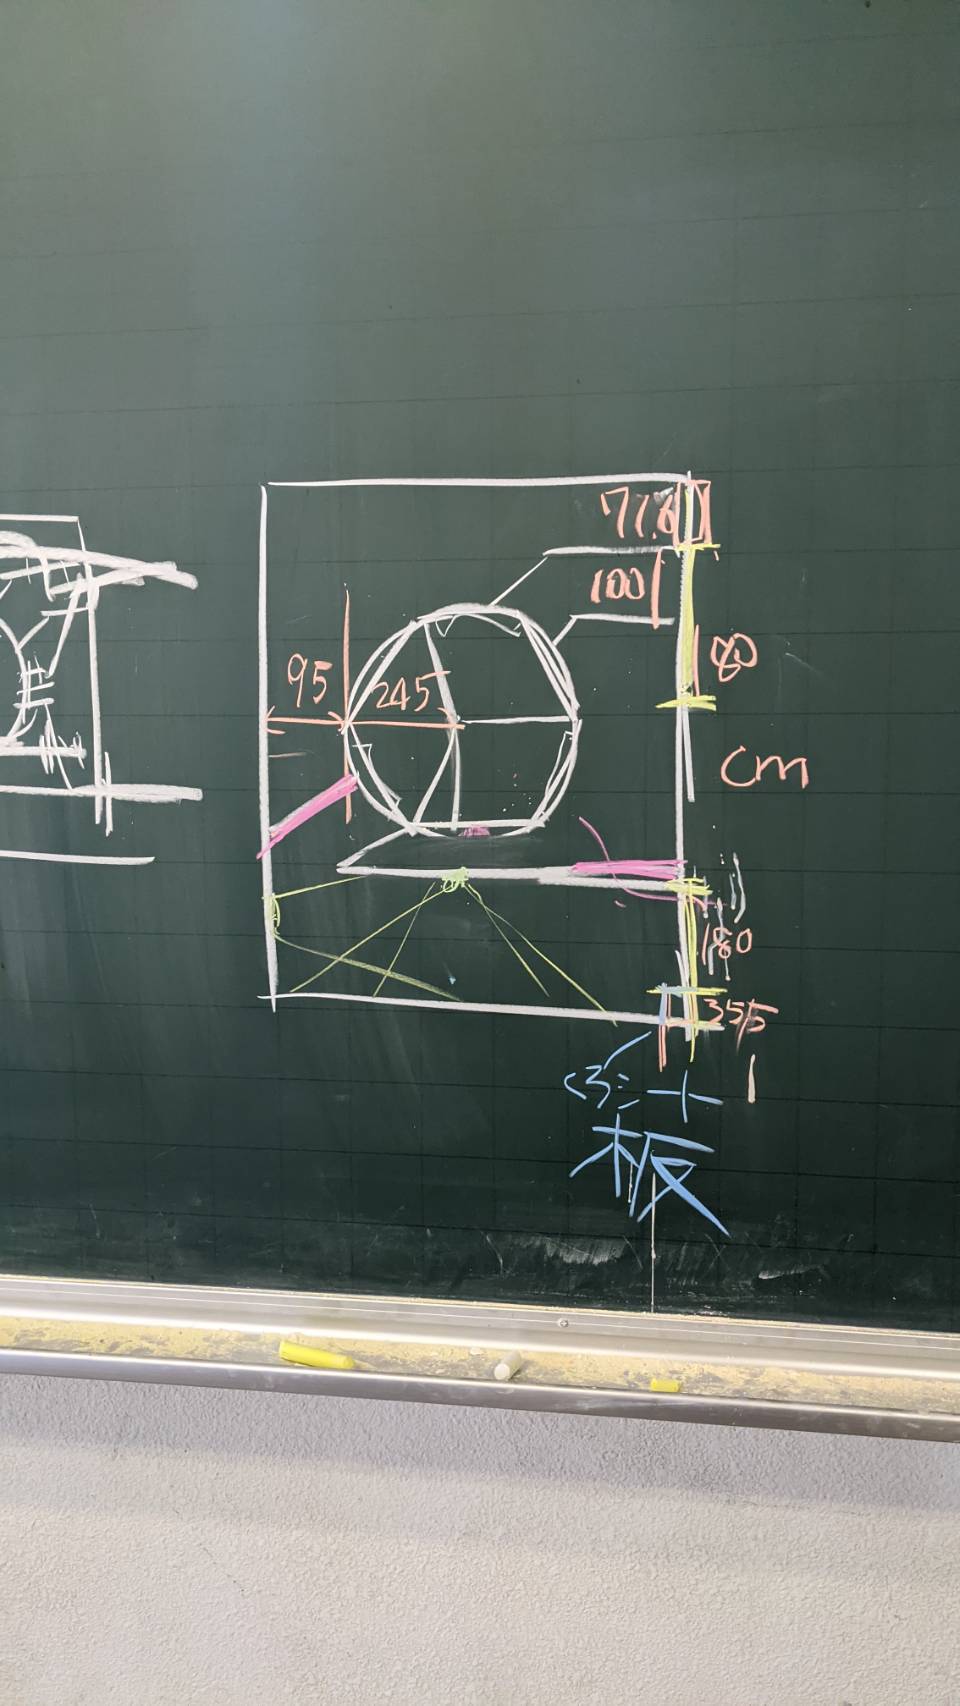 77.6
100
180
95
245
cm
180
355
ベニヤ
板